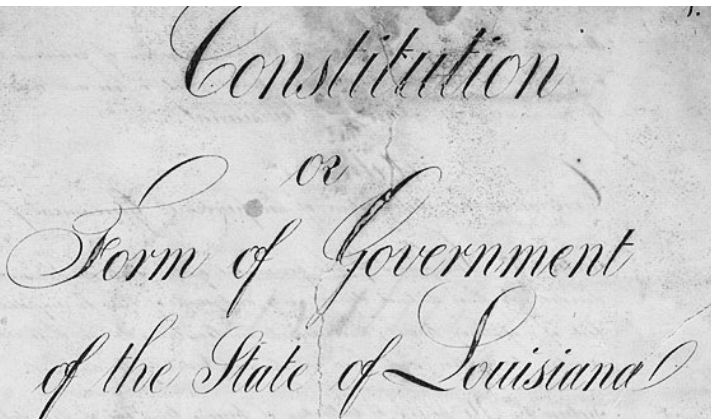 Constitution
or
Form of Government
of the State of Louisiana